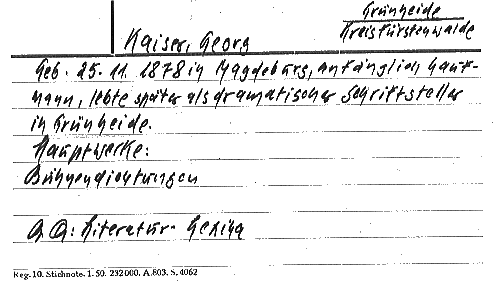 Grünheide
Kaiser, Georg
Kreis Fürstenwalde
Geb. 25. 11. 1878 in Magdeburg, anfänglich Kauf-
mann, lebte später als dramatischer Schriftsteller
in Grünheide.
Hauptwerke:
Bühnendichtungen
Qu: Literatur-Lexika
Reg. 10. Stichnote. 1. 50. 232000. A. 803. S. 4062